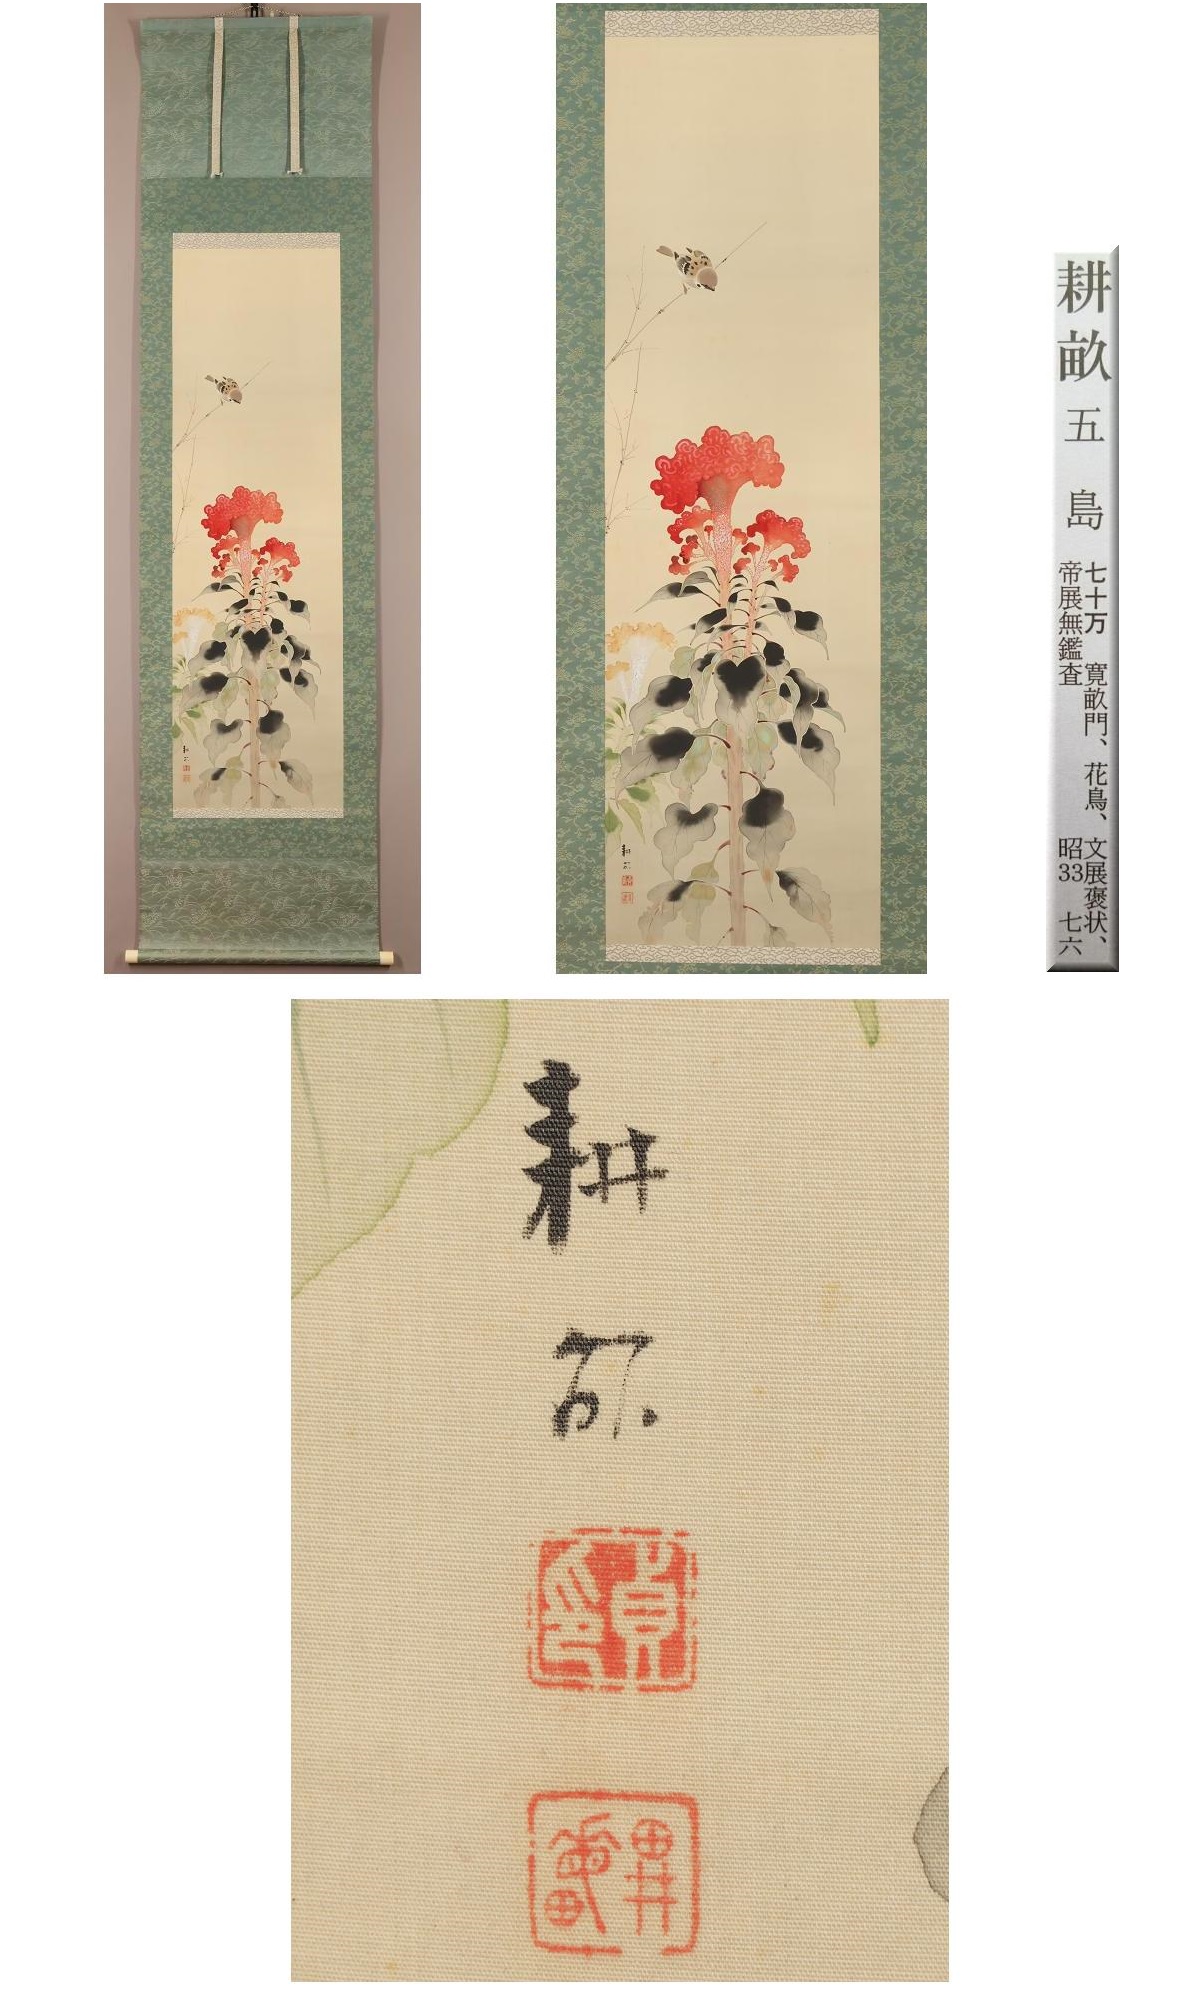 耕畝 五島
七十万 寛畝門、花鳥、文展褒状、
帝展無鑑査 昭33 七六
耕畝